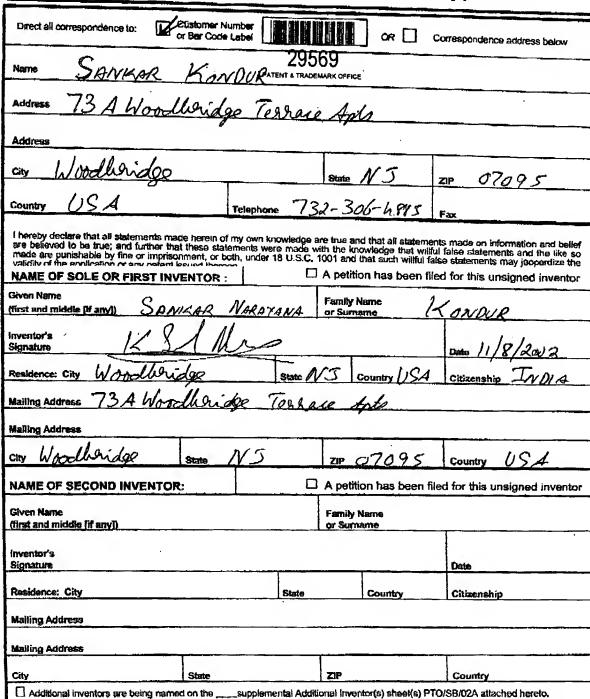 Direct all correspondence to: Customer Number or Bar Code Label OR ☐ Correspondence address below
29569
PATENT & TRADEMARK OFFICE
Name SANKAR KONDUR
Address 73 A Woodbridge Terrace Apts
Address
City Woodbridge State NJ ZIP 07095
Country USA Telephone 732-306-4895 Fax
I hereby declare that all statements made herein of my own knowledge are true and that all statements made on information and belief
are believed to be true; and further that these statements were made with the knowledge that willful false statements and the like so
made are punishable by fine or imprisonment, or both, under 18 U.S.C. 1001 and that such willful false statements may jeopardize the
validity of the application or any patent issued thereon.
NAME OF SOLE OR FIRST INVENTOR : ☐ A petition has been filed for this unsigned inventor
Given Name (first and middle [if any]) SANKAR NARAYANA Family Name or Surname KONDUR
Inventor's Signature Date 11/8/2002
Residence: City Woodbridge State NJ Country USA Citizenship INDIA
Mailing Address 73 A Woodbridge Terrace Apts
Mailing Address
City Woodbridge State NJ ZIP 07095 Country USA
NAME OF SECOND INVENTOR: ☐ A petition has been filed for this unsigned inventor
Given Name (first and middle [if any]) Family Name or Surname
Inventor's Signature Date
Residence: City State Country Citizenship
Mailing Address
Mailing Address
City State ZIP Country
☐ Additional inventors are being named on the ____supplemental Additional Inventor(s) sheet(s) PTO/SB/02A attached hereto.